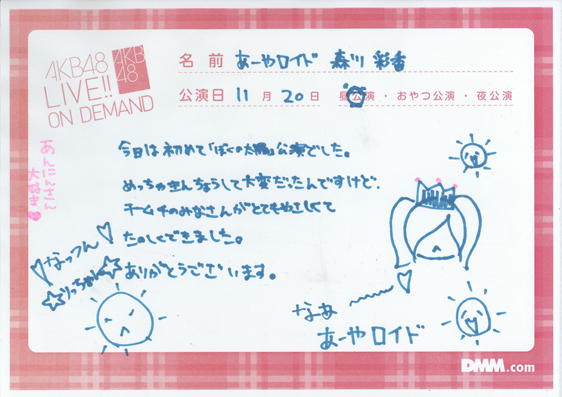 AKB48
LIVE!!
ON DEMAND
AKB
48
名前 あーやロイド 森川 彩香
公演日 11月20日 昼公演・おやつ公演・夜公演
今日は初めて「ぼくの太陽」公演でした。
めっちゃきんちょうして大変だったんですけど、
チームチのみなさんがとてもやさしくて
たのしくできました。
ありがとうございます。
あんにんさん
大好き
なっつん
りっちゃん
なあ
あーやロイド
DMM.com